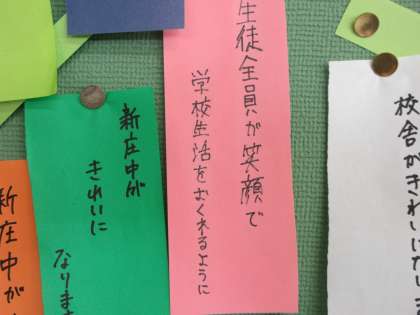 校舎がきれいでい
生徒全員が笑顔で
学校生活をおくれるように
新庄中が
きれいに
なります
新庄中が